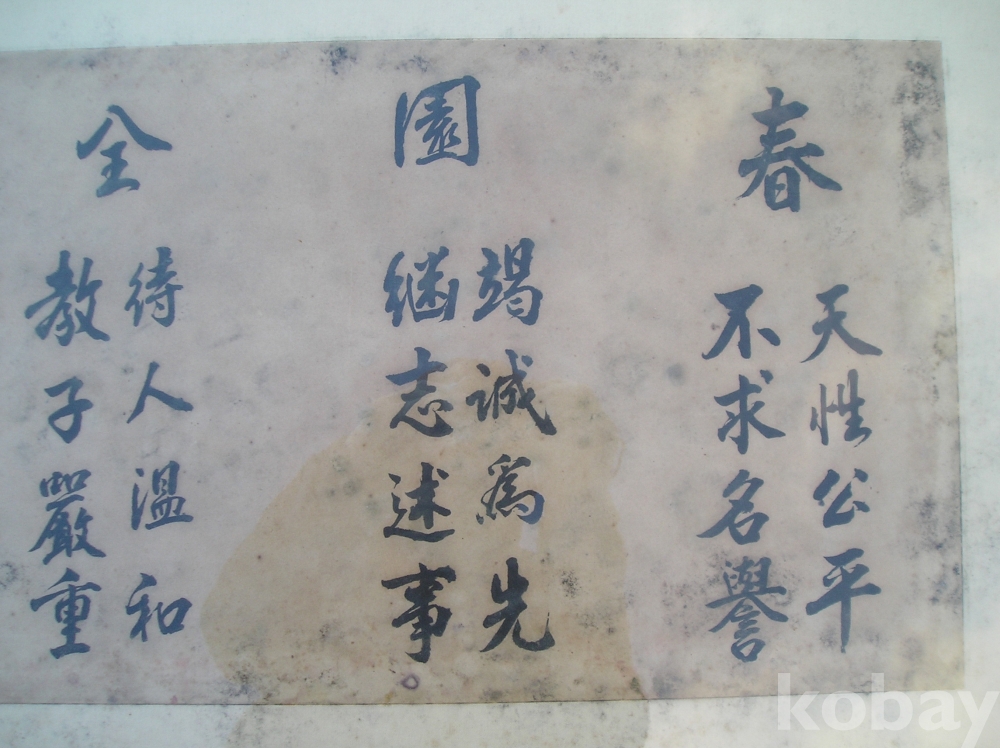 春
天性公平
不求名譽
園
竭誠爲先
継志述事
全
待人溫和
教子嚴重
kobay